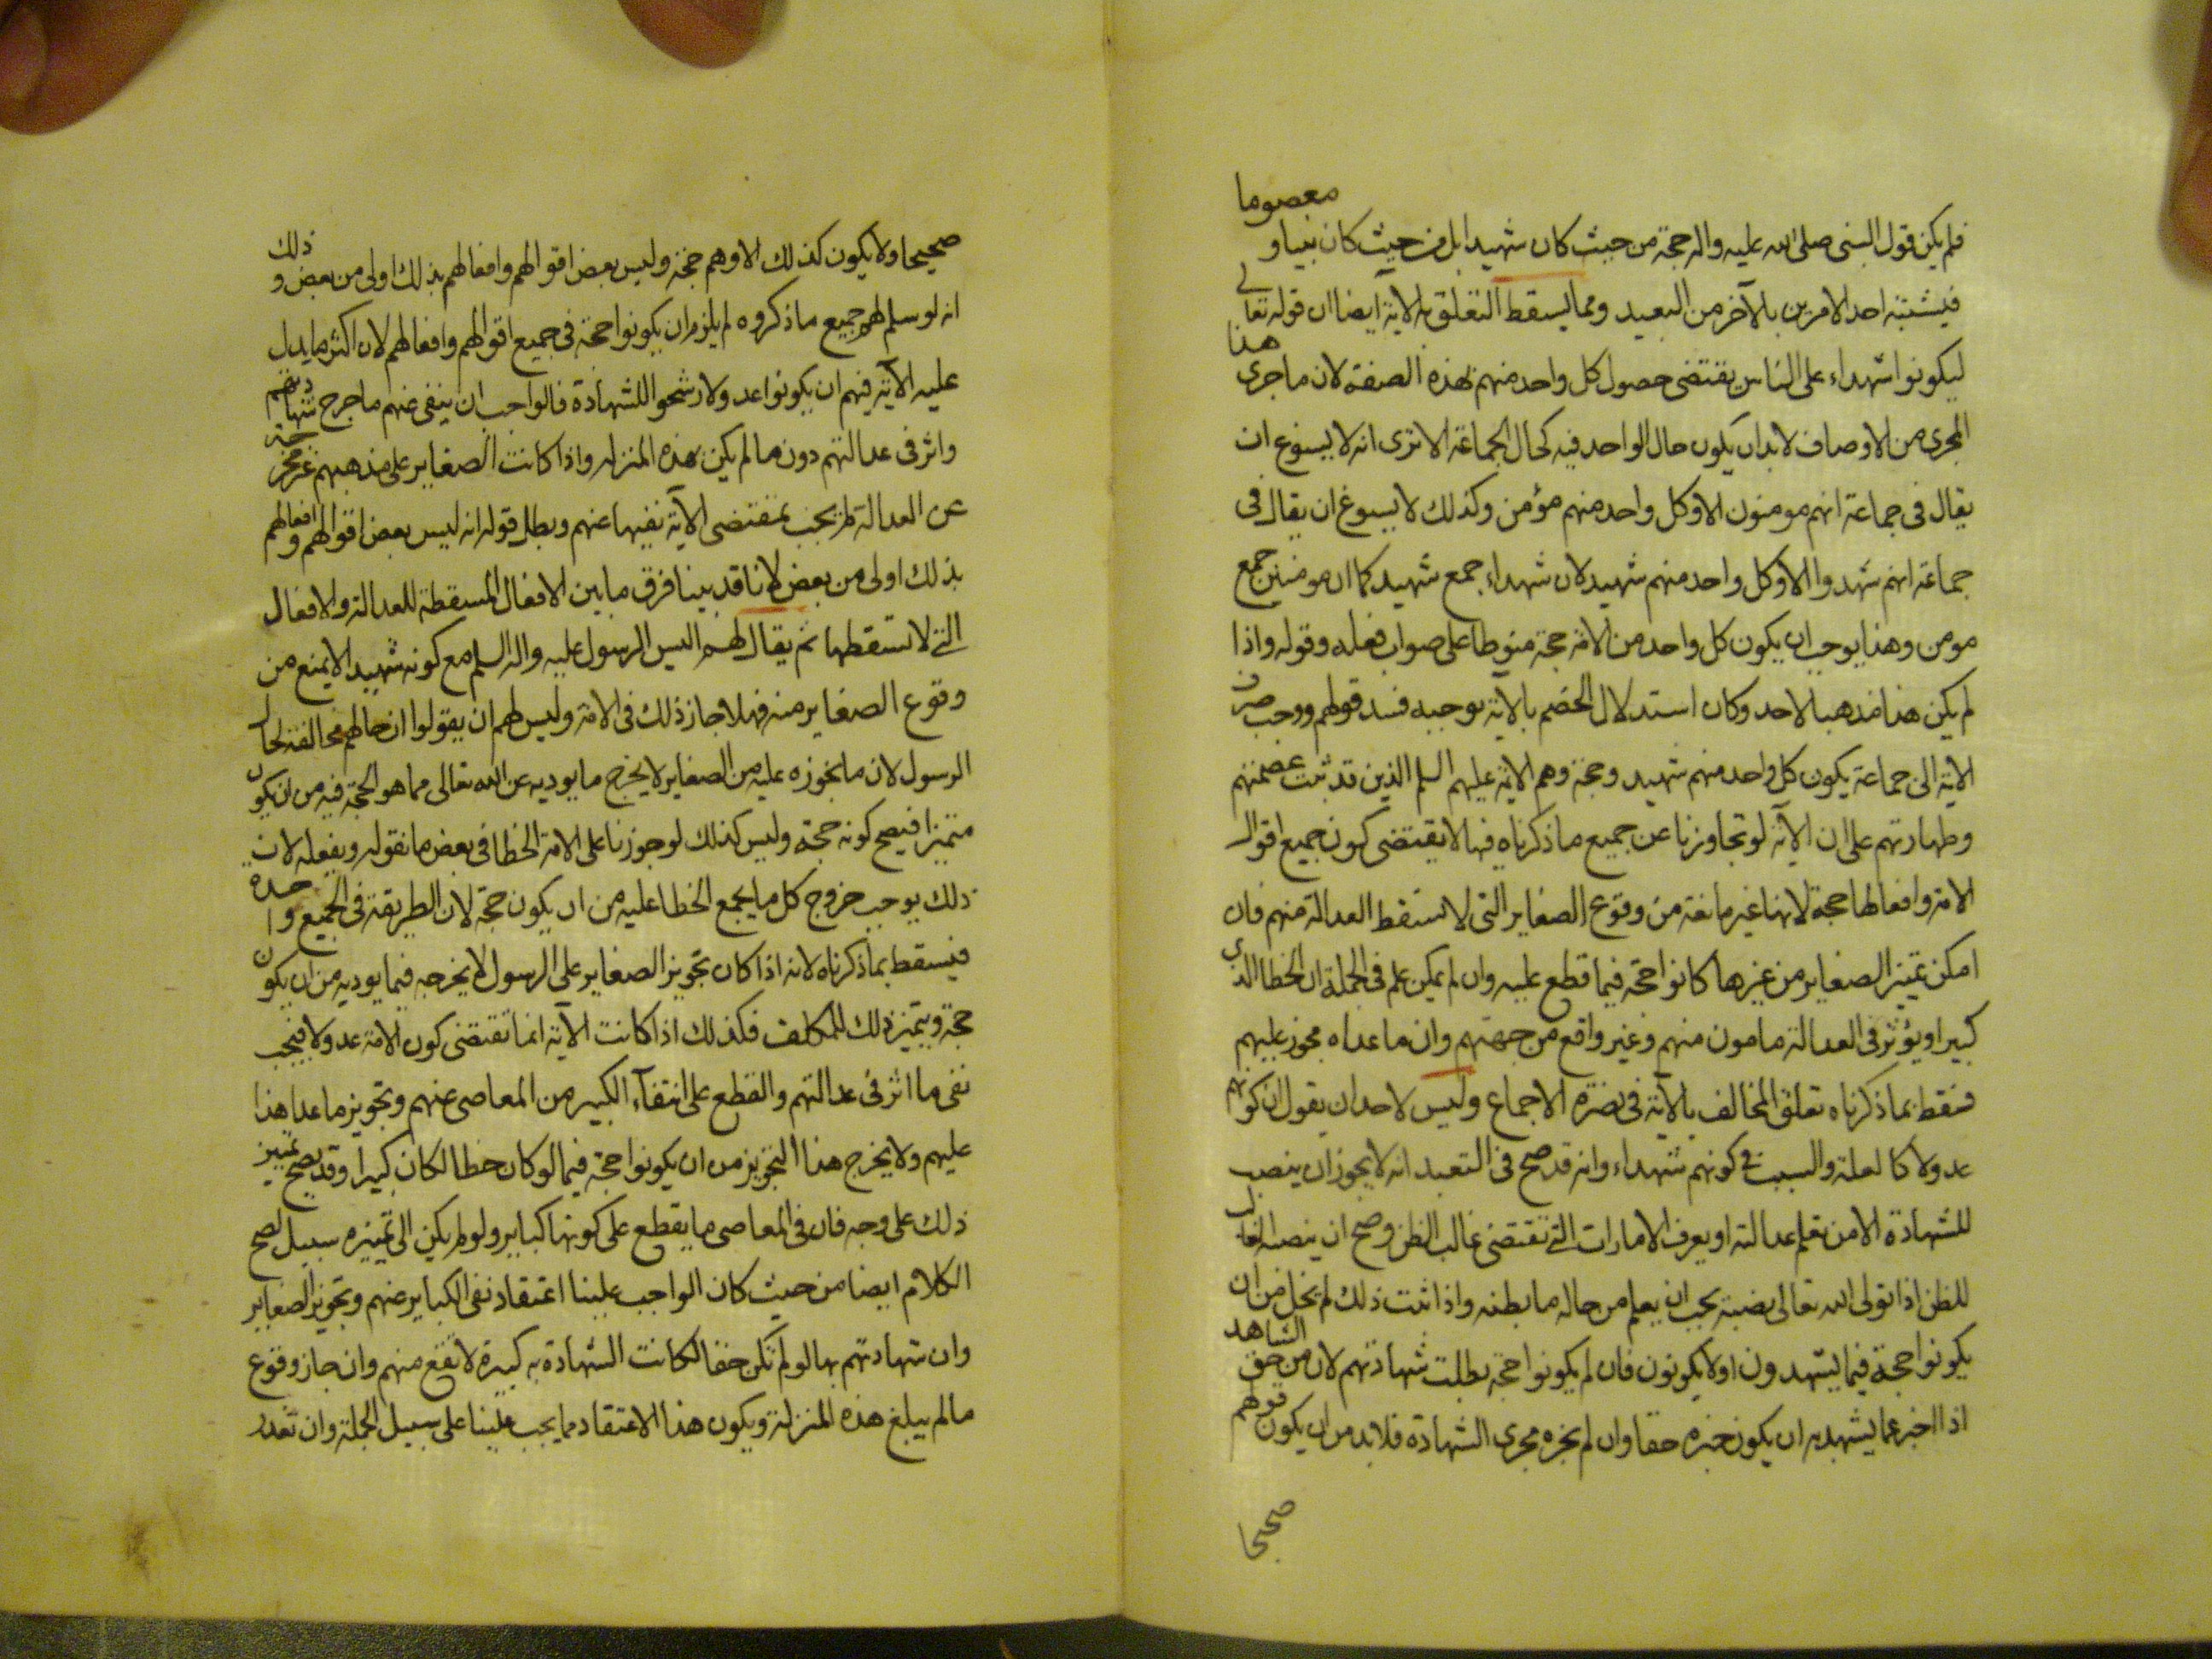 فلم يكن قول النبى صلى الله عليه واله حجة من حيث كان شهيدا بل من حيث كان نبيا و معصوما
فيشتبه احد الامرين بالآخر من البعيد ومما يسقط التعلق بالاية ايضا ان قوله تعالى
ليكونوا شهداء على الناس يقتضى حصول كل واحد منهم بهذه الصفة لان ما جرى هذا
المجرى من الاوصاف لابد ان يكون حال الواحد فيه كحال الجماعة الا ترى انه لا يسوغ ان
يقال فى جماعة انهم مومنون الا وكل واحد منهم مؤمن وكذلك لا يسوغ ان يقال فى
جماعة انهم شهدوا الا وكل واحد منهم شهيد لان شهداء جمع شهيد كما ان مومنين جمع
مومن وهذا يوجب ان يكون كل واحد من الامة حجة منوطا على صواب فعله وقوله واذا
لم يكن هذا مذهبا لاحد وكان استدلال الخصم بالآية يوجبه فسد قولهم ووجب صرف
الاية الى جماعة يكون كل واحد منهم شهيد وحجة وهم الايمة عليهم السلم الذين قد ثبت عصمتهم
وطهارتهم على ان الآية لو تجاوزنا عن جميع ما ذكرناه فيها لا يقتضى كون جميع اقوال
الامة وافعالها حجة لانها غير مانعة من وقوع الصغاير التى لا تسقط العدالة منهم فان
امكن تمييز الصغاير من غيرها كانوا حجة فيما قطع عليه وان لم يمكن علم فى الجملة ان الخطا الذى
كبيرا ويؤثر فى العدالة مامون منهم وغير واقع من جهتهم وان ما عداه مجوز عليهم
فسقط بما ذكرناه تعلق المخالف بالآية فى نصرة الاجماع وليس لاحد ان يقول ان كونهم
عدولا كالعلة والسبب فى كونهم شهداء وانه قد صح فى التعبد انه لا يجوز ان ينصب
للشهادة الا من تعلم عدالته او يعرف الامارات التى تقتضى غالب الظن وصح ان ينصب لغالب
للظن اذا تولى الله تعالى نصبه يجب ان يعلم من حاله ما يظنه واذا ثبت ذلك لم يخل من ان
يكونوا حجة فيما يشهدون او لا يكونون فان لم يكونوا حجة بطلت شهادتهم لان من حق الشاهد
اذا اخبر عما يشهد به ان يكون خبره حقا وان لم يجره مجرى الشهادة فلا بد من ان يكون قولهم
صحيحا
صحيحا ولا يكون كذلك الا وهم حجة وليس بعض اقوالهم وافعالهم بذلك اولى من بعض و ذلك
انه لو سلم لهم جميع ما ذكروه لم يلزم ان يكونوا حجة فى جميع اقوالهم وافعالهم لان اكثر ما يدل
عليه الآية فيهم ان يكونوا عدولا رشحوا للشهادة فالواجب ان ينفى عنهم ما جرح شهادتهم
واثر فى عدالتهم دون ما لم يكن بهذه المنزلة واذا كانت الصغاير على مذهبهم غير مخرجة
عن العدالة لم يجب بمقتضى الآية نفيها عنهم وبطل قوله انه ليس بعض اقوالهم وافعالهم
بذلك اولى من بعض لانا قد بينا فرق ما بين الافعال المسقطة للعدالة والافعال
التى لا تسقطها ثم يقال لهم اليس الرسول عليه واله السلم مع كونه شهيدا لا يمنع من
وقوع الصغاير منه فهلا جاز ذلك فى الامة وليس لهم ان يقولوا ان حالهم مخالفة لحال
الرسول لان ما نجوزه عليه من الصغاير لا يخرج ما يوديه عن الله تعالى مما هو الحجة فيه من ان يكون
متميزا فيصح كونه حجة وليس كذلك لو جوزنا على الامة الخطا فى بعض ما تقوله ويفعله لان
ذلك يوجب خروج كل ما يجمع الخطا عليه من ان يكون حجة لان الطريقة فى الجميع واحدة
فيسقط بما ذكرناه لانه اذا كان تجويز الصغاير على الرسول لا يخرجه فيما يوديه من ان يكون
حجة ويتميز ذلك للمكلف فكذلك اذا كانت الآية انما تقتضى كون الامة عدولا فيجب
نفى ما اثر فى عدالتهم والقطع على انتفآء الكبير من المعاصى عنهم وتجويز ما عدا هذا
عليهم ولا يخرج هذا التجويز من ان يكونوا حجة فيما لو كان خطا لكان كبيرا وقد يصح تمييز
ذلك على وجه فان فى المعاصى ما يقطع على كونها كباير ولو لم يكن الى تمييزه سبيل لصح
الكلام ايضا من حيث كان الواجب علينا اعتقاد نفى الكباير عنهم وتجويز الصغاير
وان شهادتهم بها لو لم تكن حقا لكانت الشهادة به كبيرة لا تقع منهم وان جاز وقوع
ما لم يبلغ هذه المنزلة ويكون هذا الاعتقاد مما يجب علينا على سبيل الجملة وان تعذر